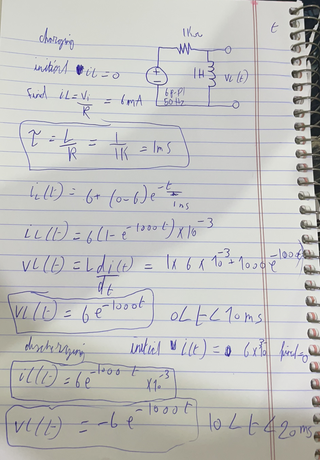 t
charging
1Kω
initial iL = 0
1H
VL(t)
find iL = Vi/R = 6mA
6 p-p
50Hz
τ = L/R = 1/1K = 1ms
iL(t) = 6 + (0-6) e^-t/1ms
iL(t) = 6(1-e^-1000t) × 10^-3
VL(t) = L di(t)/dt = 1 × 6 × 10^-3 + 1000 e^-1000t
VL(t) = 6 e^-1000t 0 < t < 10 ms
discharging initial i(t) = 6×10^-3 final=0
iL(t) = 6 e^-1000t ×10^-3
VL(t) = -6 e^-1000t 10 < t < 20ms